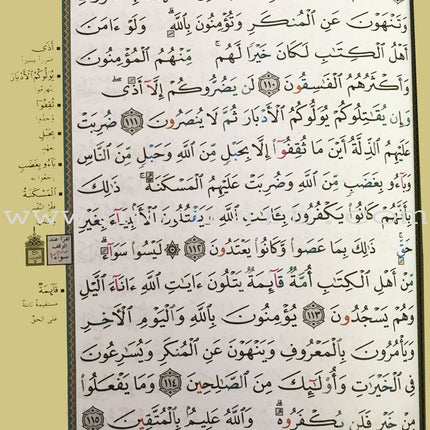 وَتَنْهَوْنَ عَنِ ٱلْمُنكَرِ وَتُؤْمِنُونَ بِٱللَّهِ ۗ وَلَوْ ءَامَنَ
أَهْلُ ٱلْكِتَٰبِ لَكَانَ خَيْرًا لَّهُم ۚ مِّنْهُمُ ٱلْمُؤْمِنُونَ
وَأَكْثَرُهُمُ ٱلْفَٰسِقُونَ ١١٠ لَن يَضُرُّوكُمْ إِلَّآ أَذًى ۖ
وَإِن يُقَٰتِلُوكُمْ يُوَلُّوكُمُ ٱلْأَدْبَارَ ثُمَّ لَا يُنصَرُونَ ١١١ ضُرِبَتْ
عَلَيْهِمُ ٱلذِّلَّةُ أَيْنَ مَا ثُقِفُوٓا۟ إِلَّا بِحَبْلٍ مِّنَ ٱللَّهِ وَحَبْلٍ مِّنَ ٱلنَّاسِ
وَبَآءُو بِغَضَبٍ مِّنَ ٱللَّهِ وَضُرِبَتْ عَلَيْهِمُ ٱلْمَسْكَنَةُ ۚ ذَٰلِكَ
بِأَنَّهُمْ كَانُوا۟ يَكْفُرُونَ بِـَٔايَٰتِ ٱللَّهِ وَيَقْتُلُونَ ٱلْأَنۢبِيَآءَ بِغَيْرِ
حَقٍّ ۚ ذَٰلِكَ بِمَا عَصَوا۟ وَّكَانُوا۟ يَعْتَدُونَ ١١٢ ۞ لَيْسُوا۟ سَوَآءً ۗ
مِّنْ أَهْلِ ٱلْكِتَٰبِ أُمَّةٌ قَآئِمَةٌ يَتْلُونَ ءَايَٰتِ ٱللَّهِ ءَانَآءَ ٱلَّيْلِ
وَهُمْ يَسْجُدُونَ ١١٣ يُؤْمِنُونَ بِٱللَّهِ وَٱلْيَوْمِ ٱلْءَاخِرِ
وَيَأْمُرُونَ بِٱلْمَعْرُوفِ وَيَنْهَوْنَ عَنِ ٱلْمُنكَرِ وَيُسَٰرِعُونَ
فِى ٱلْخَيْرَٰتِ وَأُو۟لَٰٓئِكَ مِنَ ٱلصَّٰلِحِينَ ١١٤ وَمَا يَفْعَلُوا۟
مِنْ خَيْرٍ فَلَن يُكْفَرُوهُ ۗ وَٱللَّهُ عَلِيمٌۢ بِٱلْمُتَّقِينَ ١١٥
أَذًى
ضررا يسيرا
يُوَلُّوكُمُ ٱلْأَدْبَارَ
ينهزموا
ثُقِفُوٓا۟
وجدوا
بِحَبْلٍ
بعهد
بَآءُو بِغَضَبٍ
رجعوا به
ٱلْمَسْكَنَةُ
فقر النفس
تقرأ عند
الوقف
سواءا
قَآئِمَةٌ
مستقيمة ثابتة
على الحق